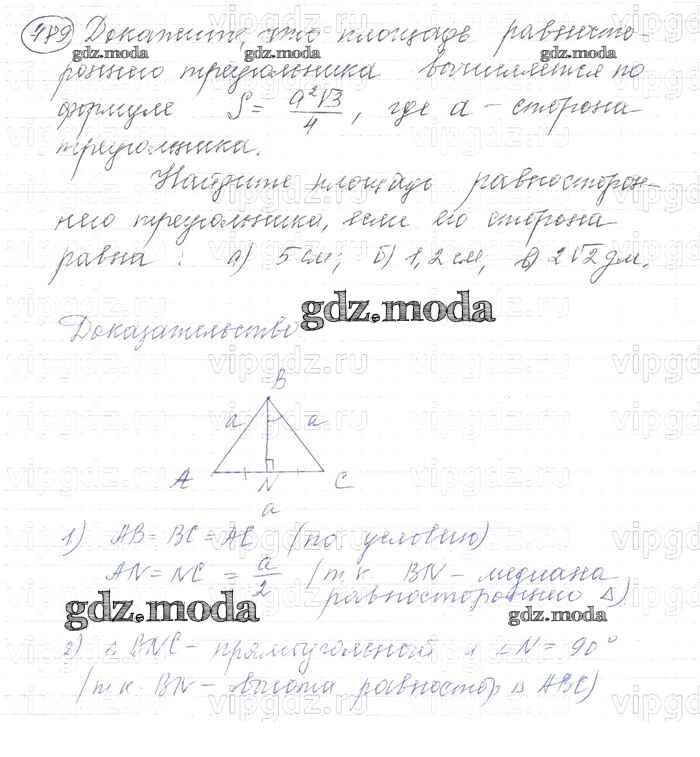 489 Докажите, что площадь равносто-
gdz.moda gdz.moda gdz.moda
роннего треугольника вычисляется по
формуле S = a²√3/4, где a – сторона
треугольника.
Найдите площадь равносторон-
него треугольника, если его сторона
равна: а) 5 см; б) 1,2 см, в) 2√2 дм.
gdz.moda
Доказательство
gdz.moda
B
a a
A N C
a
1) AB = BC = AC (по условию)
AN = NC = a/2 (т.к. BN – медиана
равностороннего Δ)
gdz.moda
gdz.moda
2) Δ BNC – прямоугольный, ∠N = 90°
(т.к. BN – высота равностор. Δ ABC)